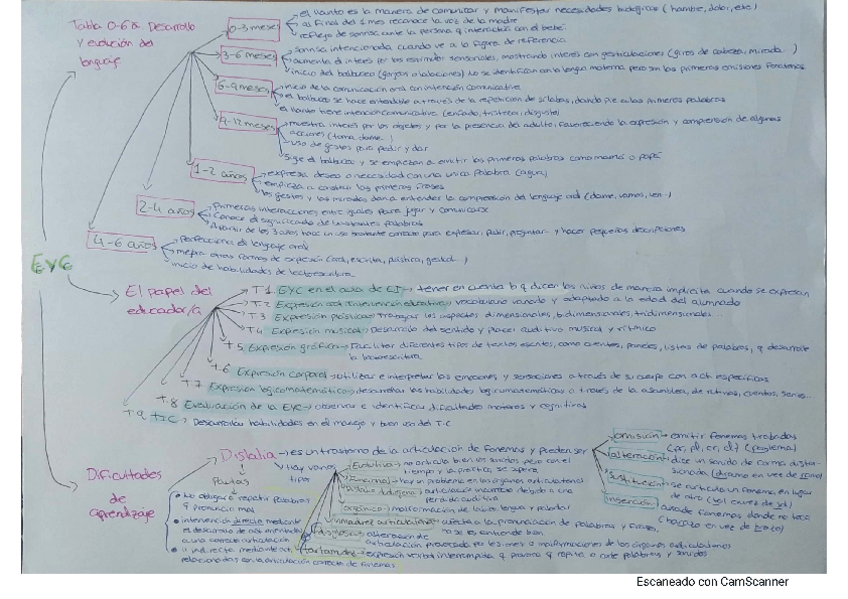 Tabla 0-6 a. Desarrollo
y evolución del
lenguaje
0-3 meses
el llanto es la manera de comunicar y manifestar necesidades biológicas (hambre, dolor, etc)
al final del 1 mes reconoce la voz de la madre
reflejo de sonrisa ante la persona q interactúa con el bebé
3-6 meses
sonrisa intencionada cuando ve a la figura de referencia
aumenta el interés por los estímulos sensoriales, mostrando interés con gesticulaciones (giros de cabeza, mirada...)
inicio del balbuceo No se identifican con la lengua materna pero son las primeras emisiones
6-9 meses
inicio de la comunicación oral con intención comunicativa
el balbuceo se hace entendible a través de la repetición de sílabas, dando pie a las primeras palabras
el llanto tiene intención comunicativa (enfado, tristeza, disgusto)
9-12 meses
muestra interés por los objetos y por la presencia del adulto, favoreciendo la expresión y comprensión de algunas
acciones (toma, dame...)
uso de gestos para pedir y dar
sigue el balbuceo y se empiezan a emitir las primeras palabras como mamá o papá
1-2 años
expresa deseo o necesidad con una única palabra (agua)
empieza a construir las primeras frases
los gestos y las miradas dan a entender la comprensión del lenguaje oral (dame, vamos, ven...)
2-4 años
Primeras interacciones entre iguales para jugar y comunicarse
Conoce el significado de palabras
A partir de los 3 años hace un uso bastante correcto para expresar, pedir, preguntar y hacer pequeñas descripciones
4-6 años
Perfecciona el lenguaje oral
mejora otras formas de expresión (oral, escrita, plástica, gestual...)
inicio de habilidades de lectoescritura
EyC
El papel del
educador/a
T.1 EYC en el aula de EI → tener en cuenta lo q dicen los niños de manera implícita cuando se expresan
T.2 Expresión oral. Intervención educativa → vocabulario variado y adaptado a la edad del alumnado
T.3 Expresión plástica → Trabajar los aspectos dimensionales, bidimensionales, tridimensionales...
T.4 Expresión musical → Desarrollo del sentido y placer auditivo musical y rítmico
T.5 Expresión gráfica → Facilitar diferentes tipos de textos escritos, como cuentos, listas de palabras, q desarrolle
la lectoescritura
T.6 Expresión corporal → utilizar e interpretar las emociones y sensaciones a través de su cuerpo con act. específicas
T.7 Expresión logicomatemática → desarrollar las habilidades logicomatemáticas a través de la asamblea, de rutinas, cuentos, series...
T.8 Evaluación de la EYC → observar e identificar dificultades motoras y cognitivas
T.9 TIC → Desarrollar habilidades en el manejo y buen uso del TIC
Dificultades
de
aprendizaje
Dislalia → es un trastorno de la articulación de fonemas y pueden ser
Pautas
No obligar a repetir palabras
q pronuncia mal
intervención directa mediante
el desarrollo de
a una correcta articulación
o indirecta mediante act.
relacionadas con la articulación correcta de fonemas
Hay varios
tipos
Evolutiva → no articula bien los sonidos pero con el
tiempo y la práctica, se supera
Funcional → hay un problema en los órganos articulatorios
articulación incorrecta debido a una
pérdida auditiva
orgánica → malformación de labios, lengua y paladar
inmadurez articulatoria → afecta a la pronunciación de palabras y frases,
no se entiende bien
alteración de
articulación provocada por lesiones o malformaciones de los órganos articulatorios
Tartamudez → expresión verbal interrumpida q provoca q repita o corte palabras y sonidos
omisión → omitir fonemas trabados
(pr, pl, cr, cl)
alteración → dice un sonido de forma distor-
sionada
sustitución → se articula un fonema en lugar
de otro
inserción → añade fonemas donde no toca
Escaneado con CamScanner